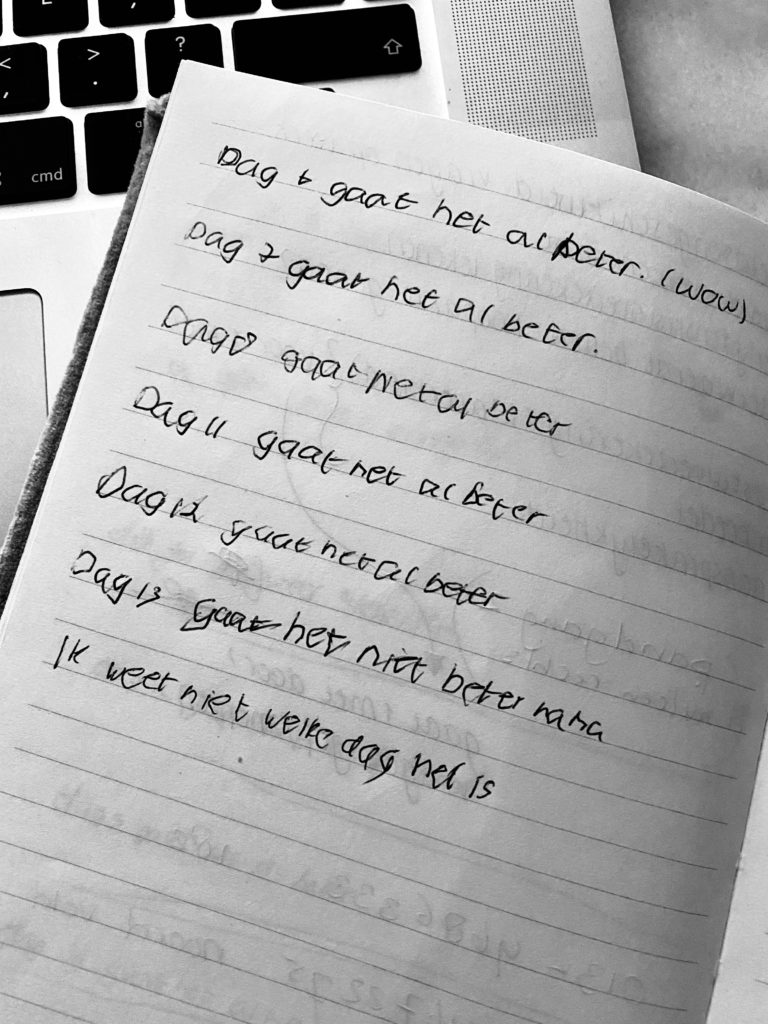 >
?
<
.
,
cmd
Dag 6 gaat het al beter. (wow)
Dag 7 gaat het al beter.
Dag 8 gaat het al beter
Dag 11 gaat het al beter
Dag 12 gaat het al beter
Dag 13 gaat het niet beter haha
Ik weet niet welke dag het is